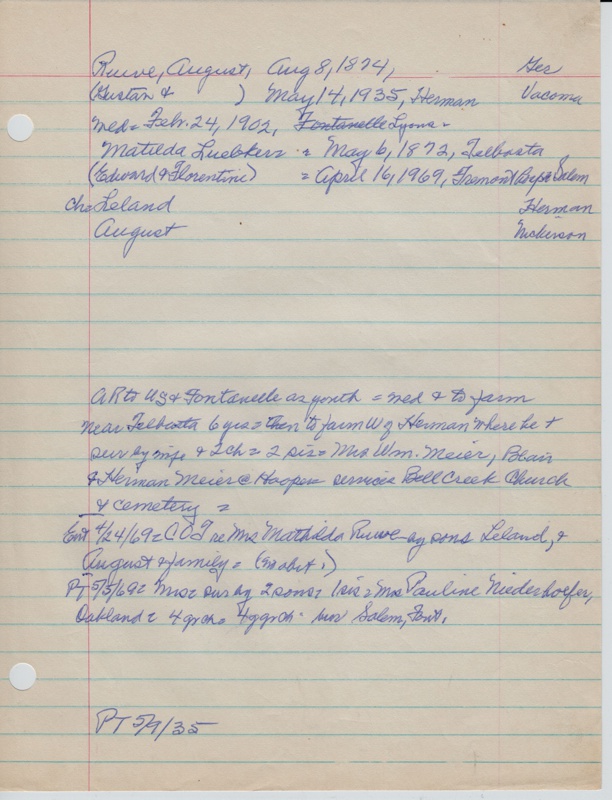 Ruwe, August, Aug 8, 1874, Ger
(Gustav & ) May 14, 1935, Herman Vacoma
med = Febr. 24, 1902, Fontanelle Lyons =
Matilda Luebker = = May 6, 1872, Telbasta
(Edward & Florentine) = April 16, 1969, Fremont Salem
Ch = Leland Herman
August Nickerson
AR to US & Fontanelle as youth = med & to farm
near Telbasta 6 yrs = then to farm W of Herman where he +
surv by wife & 2 ch = 2 sis = Mrs Wm. Meier, Blair
& Herman Meier @ Hooper = services Bell Creek Church
& cemetery =
Ent 4/24/69 = COT re Mrs Mathilda Ruwe by sons Leland, &
August & family = (no obit.)
PT 5/5/69 = Mrs = sur by 2 sons = 1 sis = Mrs Pauline Niederhoefer,
Oakland = 4 grch = 4 ggrch = Salem, Font.
PT 5/9/35